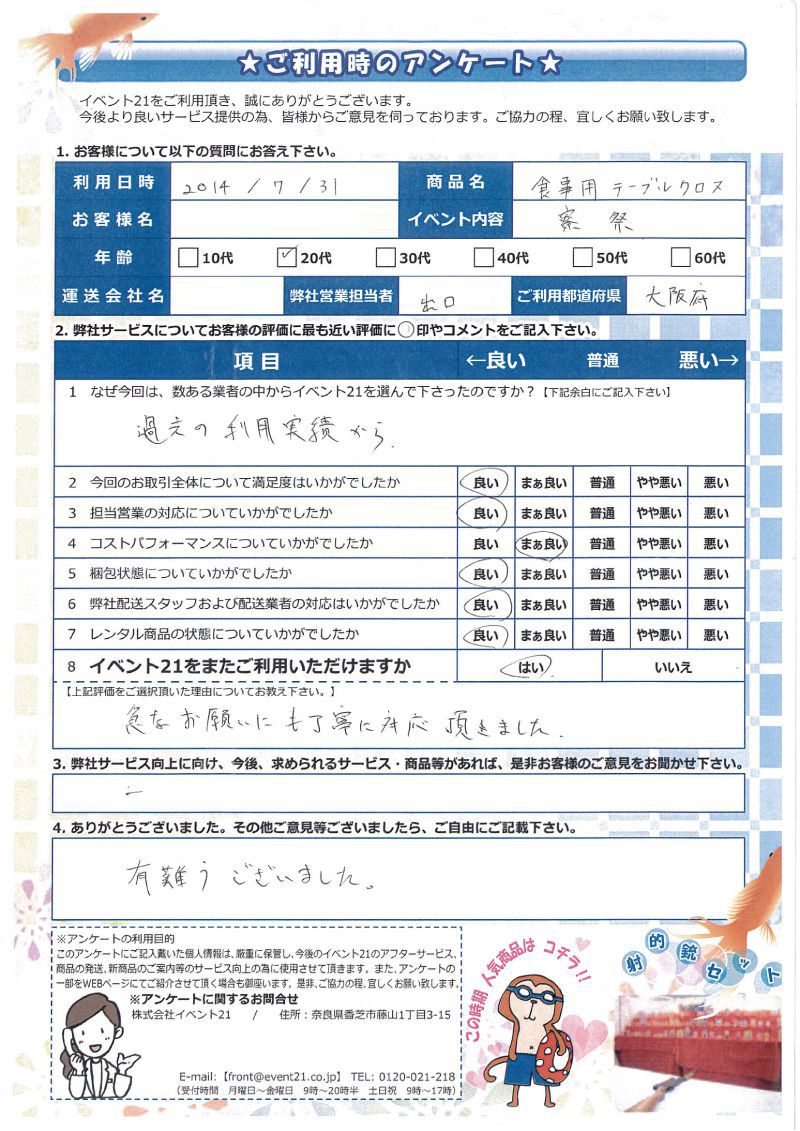 ★ご利用時のアンケート★
イベント21をご利用頂き、誠にありがとうございます。
今後より良いサービス提供の為、皆様からご意見を伺っております。ご協力の程、宜しくお願い致します。
1. お客様について以下の質問にお答え下さい。
利用日時 2014 / 7 / 31 商品名 食事用 テーブルクロス
お客様名 イベント内容 寮祭
年齢 10代 ✓ 20代 30代 40代 50代 60代
運送会社名 弊社営業担当者 出口 ご利用都道府県 大阪府
2. 弊社サービスについてお客様の評価に最も近い評価に○印やコメントをご記入下さい。
項目 ←良い 普通 悪い→
1 なぜ今回は、数ある業者の中からイベント21を選んで下さったのですか？【下記余白にご記入下さい】
過去の利用実績から.
2 今回のお取引全体について満足度はいかがでしたか 良い まぁ良い 普通 やや悪い 悪い
3 担当営業の対応についていかがでしたか 良い まぁ良い 普通 やや悪い 悪い
4 コストパフォーマンスについていかがでしたか 良い まぁ良い 普通 やや悪い 悪い
5 梱包状態についていかがでしたか 良い まぁ良い 普通 やや悪い 悪い
6 弊社配送スタッフおよび配送業者の対応はいかがでしたか 良い まぁ良い 普通 やや悪い 悪い
7 レンタル商品の状態についていかがでしたか 良い まぁ良い 普通 やや悪い 悪い
8 イベント21をまたご利用いただけますか はい いいえ
【上記評価をご選択頂いた理由についてお教え下さい。】
急なお願いにも丁寧に対応頂きました.
3. 弊社サービス向上に向け、今後、求められるサービス・商品等があれば、是非お客様のご意見をお聞かせ下さい。
4. ありがとうございました。その他ご意見等ございましたら、ご自由にご記載下さい。
有難うございました。
※アンケートの利用目的
このアンケートにご記入戴いた個人情報は、厳重に保管し、今後のイベント21のアフターサービス、
商品の発送、新商品のご案内等のサービス向上の為に使用させて頂きます。また、アンケートの
一部をWEBページにてご紹介させて頂く場合も御座います。是非、ご協力の程、宜しくお願い致します。
※アンケートに関するお問合せ
株式会社イベント21 / 住所：奈良県香芝市藤山1丁目3-15
E-mail:【front@event21.co.jp】 TEL: 0120-021-218
（受付時間 月曜日～金曜日 9時～20時半 土日祝 9時～17時）
この時期 人気商品は コチラ!!
射的銃セット